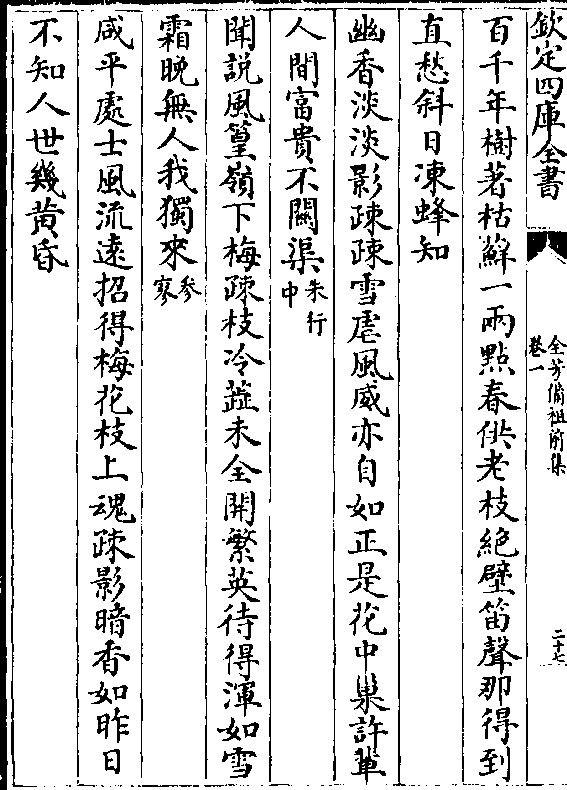 欽定四庫全書
全芳備祖前集
卷一
二十七
百千年樹著枯蘚一兩點春供老枝絶壁笛聲那得到
直愁斜日凍蜂知
幽香淡淡影疎疎雪虐風威亦自如正是花中巢許輩
人間富貴不關渠朱行中
聞説風篁嶺下梅疎枝冷蕋未全開繁英待得渾如雪
霜晚無人我獨來参寥
咸平處士風流逺招得梅花枝上魂疎影暗香如昨日
不知人世幾黄昏